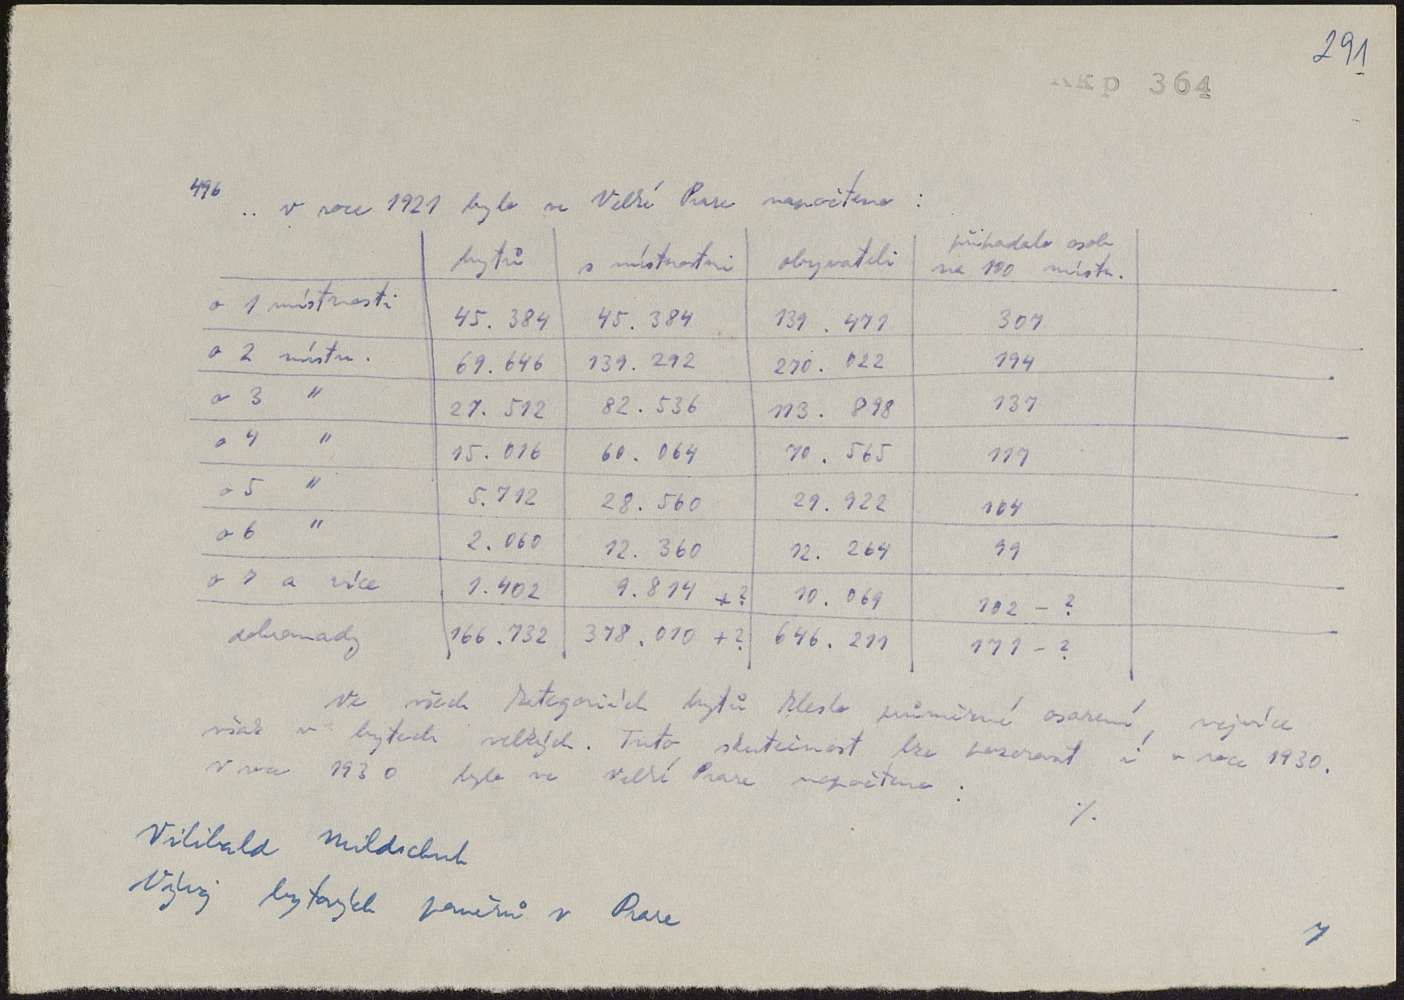 291
KKp 364
496 .. v roce 1921 bylo ve Velké Praze napočteno :
bytů s místnostmi obyvateli připadalo osob na 100 místn.
o 1 místnosti 45.384 45.384 139.471 307
o 2 místn. 69.646 139.292 270.022 194
o 3 " 27.512 82.536 113.898 137
o 4 " 15.016 60.064 70.565 117
o 5 " 5.712 28.560 29.922 104
o 6 " 2.060 12.360 12.264 99
o 7 a více 1.402 9.814 +? 10.069 102 - ?
dohromady 166.732 378.010 +? 646.211 171 - ?
Ve všech kategoriích bytů kleslo průměrné osazení, nejvíce
však v bytech velkých. Tuto skutečnost lze pozorovat i v roce 1930.
V roce 1930 bylo ve Velké Praze napočteno :
·/.
Vilibald Mildschuh
Vývoj bytových poměrů v Praze
7